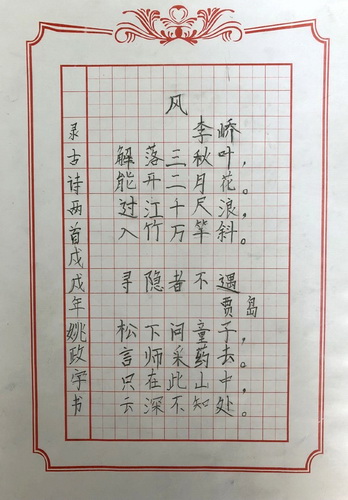 风
李峤
解落三秋叶，
能开二月花。
过江千尺浪，
入竹万竿斜。
寻隐者不遇
贾岛
松下问童子，
言师采药去。
只在此山中，
云深不知处。
录古诗两首戊戌年姚政字书